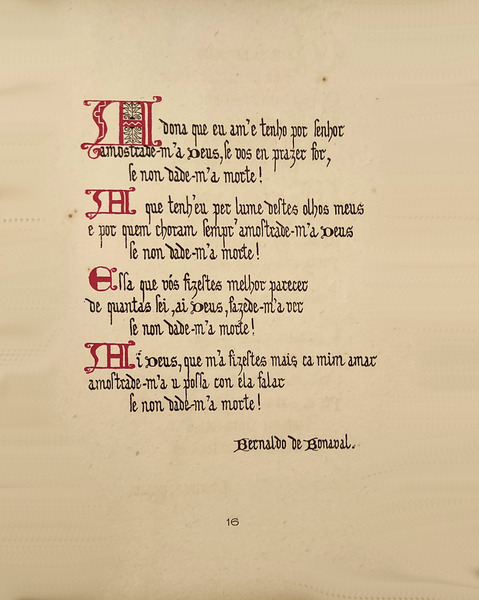 A dona que eu am'e tenho por senhor
amostrade-m'a Deus, se vos en prazer for,
se non dade-m'a morte!
A que tenh'eu per lume destes olhos meus
e por quem choram sempr'amostrade-m'a Deus
se non dade-m'a morte!
Essa que vós fizestes melhor parecer
de quantas sei, ai Deus, fazede-m'a ver
se non dade-m'a morte!
Ai Deus, que m'a fizestes mais ca mim amar
amostrade-m'a u possa con éla falar
se non dade-m'a morte!
Bernaldo de Bonaval.
16